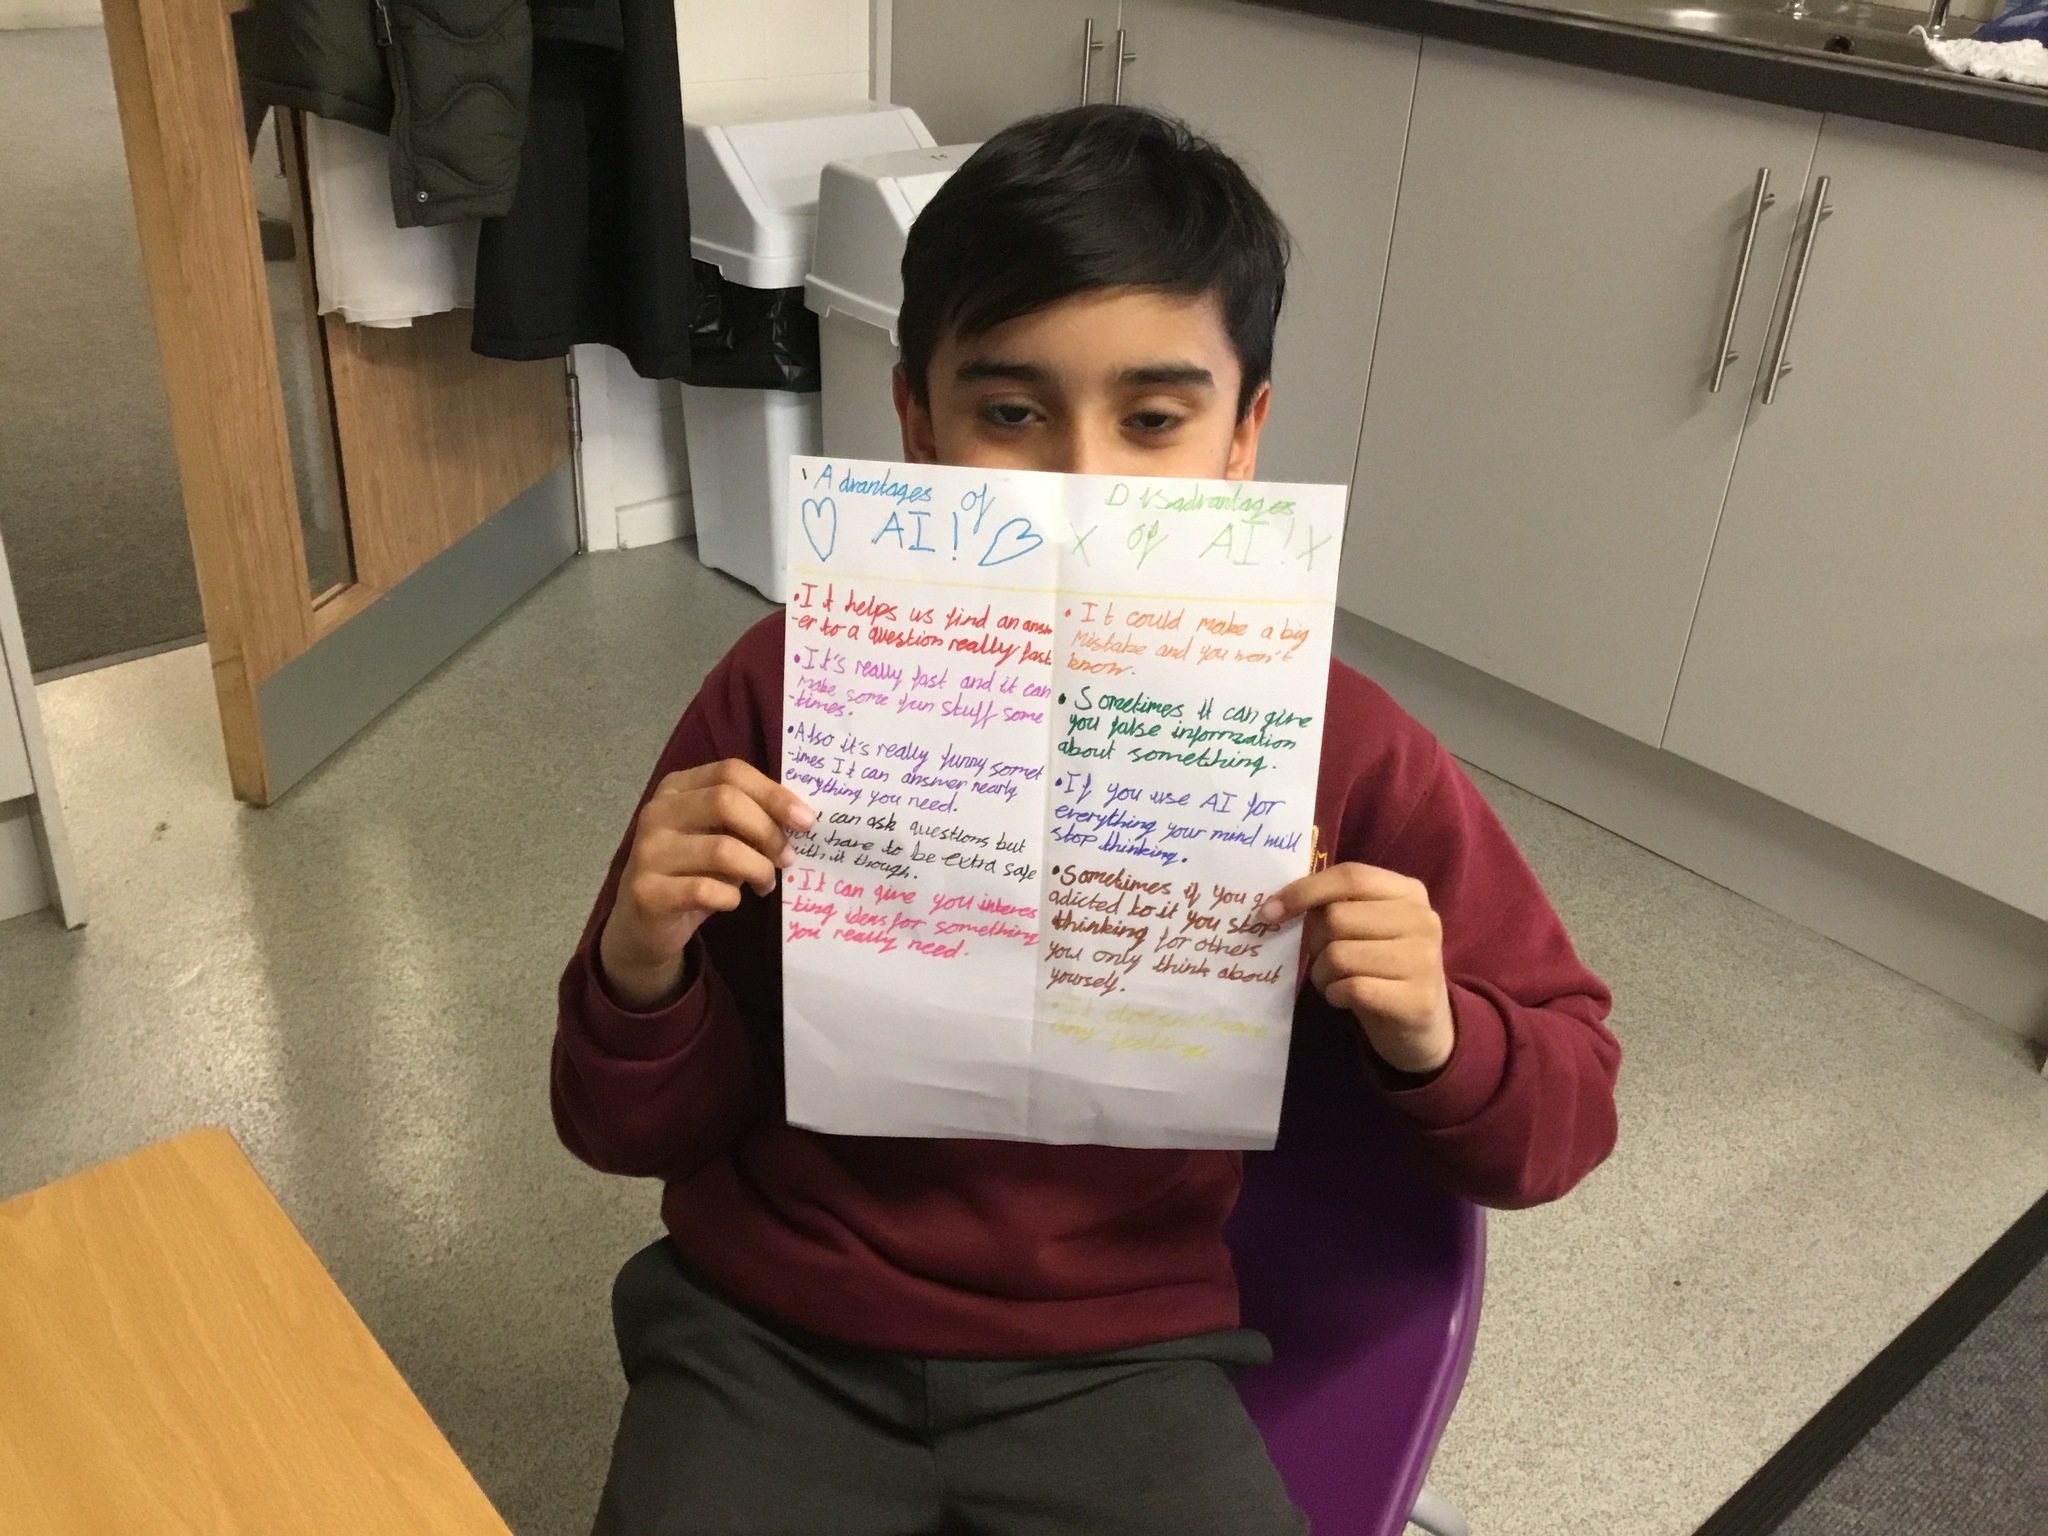 Advantages of
AI!
• It helps us find an answ
-er to a question really fast
• It's really fast and it can
make some fun stuff some
-times.
• Also it's really funny somet
-imes It can answer nearly
everything you need.
can ask questions but
you have to be extra safe
with it though.
• It can give you interes
-ting ideas for something
you really need.
Disadvantages
X of AI! X
• It could make a big
mistake and you won't
know.
• Sometimes it can give
you false information
about something.
• If you use AI for
everything your mind will
stop thinking.
• Sometimes if you
adicted to it you stop
thinking for others
you only think about
yourself.
• It doesn't have
any feelings